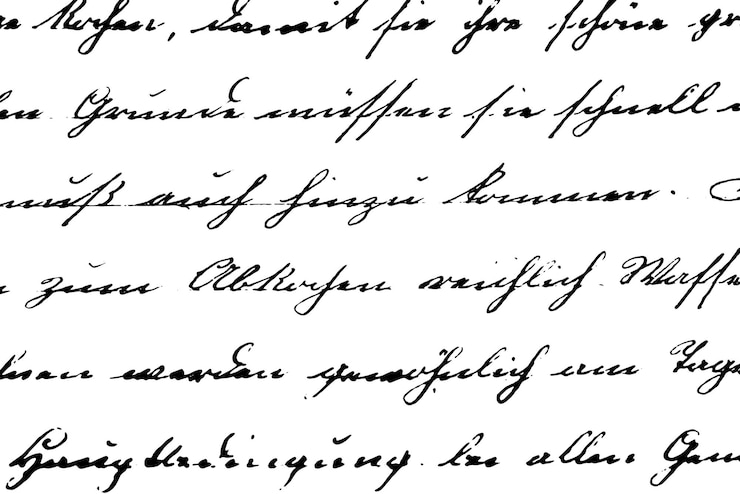 kochen, damit sie ihre schöne gr
Grunde müssen sie schnell
muß auch hinzu kommen.
zum Abkochen reichlich Wasse
werden gewöhnlich am Tage
Hauptbedingung bei allen Gem